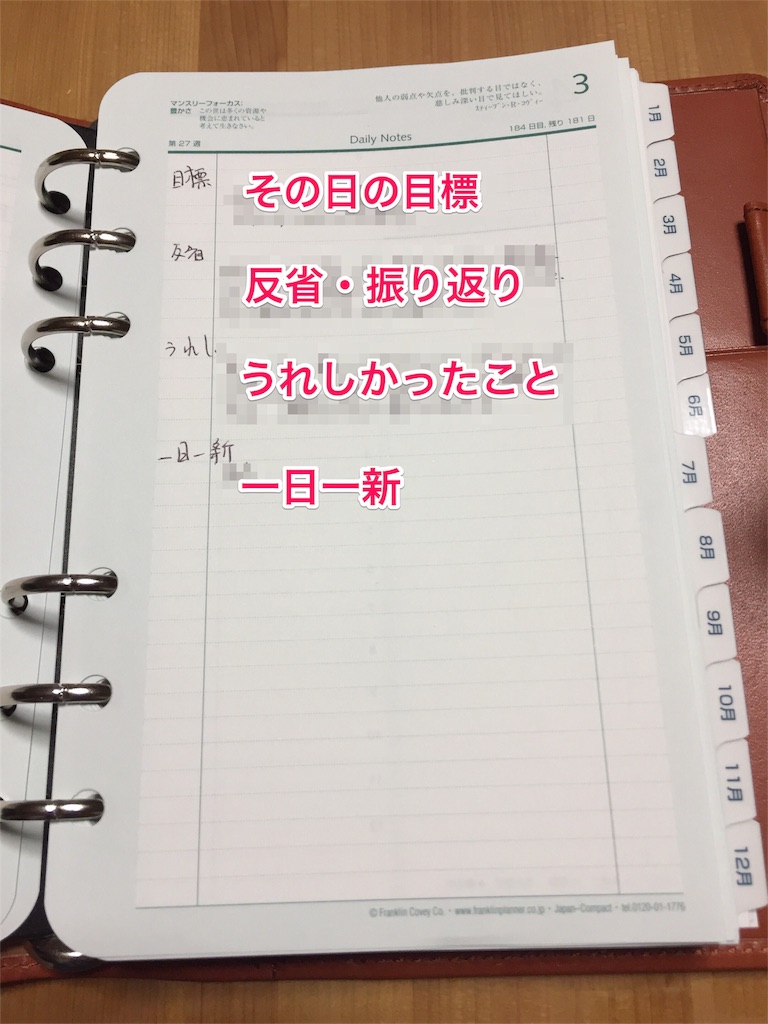 マンスリーフォーカス:
豊かさ この世は多くの資源や
機会に恵まれていると
考えて生きなさい。
他人の弱点や欠点を、批判する目ではなく、
慈しみ深い目で見てほしい。
スティーブン・R・コヴィー
3
第27週
Daily Notes
184日目, 残り 181日
目標
その日の目標
反省
反省・振り返り
うれし
うれしかったこと
一日一新
一日一新
1月
2月
3月
4月
5月
6月
7月
8月
9月
10月
11月
12月
© Franklin Covey Co. • www.franklinplanner.co.jp • Japan-Compact • tel.0120-01-1776